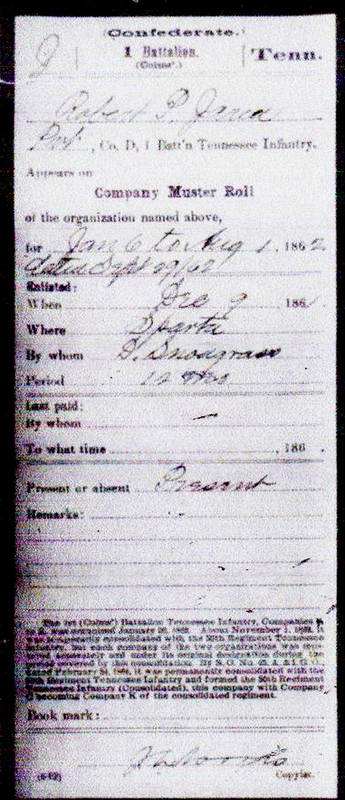 (Confederate.)
J 1 Battalion. Tenn.
(Colms'.)
Robert P. Jared
Pvt, Co. D, 1 Batt'n Tennessee Infantry.
Appears on
Company Muster Roll
of the organization named above,
for Jan 6 to Aug 1, 1862
dated Sept 29/62
Enlisted:
When Dec 9, 186
Where Sparta
By whom D. Snodgrass
Period 12 mo
Last paid:
By whom
To what time , 186 .
Present or absent Present
Remarks:
The 1st (Colms') Battalion Tennessee Infantry, Companies
was organized January 1862. About November 1, 1862, it
consolidated with the 50th Regiment Tennessee
Infantry, but each company of the two organizations was
separately and under its original designation during the
period covered by this consolidation. By S. O. No. A. & I. G. O.,
dated February 1864, it was permanently consolidated with the
50th Regiment Tennessee Infantry and formed the 50th Regiment
Tennessee Infantry (Consolidated), this company with Company
becoming Company K of the consolidated regiment.
Book mark:
(642) Copyist.